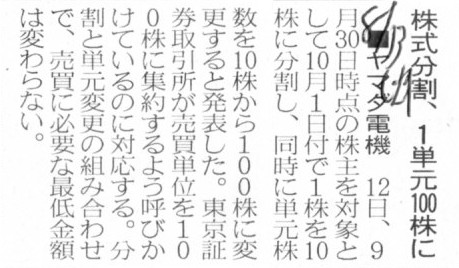 株式分割、1単元100株に
■ヤマダ電機　12日、9
月30日時点の株主を対象と
して10月1日付で1株を10
株に分割し、同時に単元株
数を10株から100株に変
更すると発表した。東京証
券取引所が売買単位を10
0株に集約するよう呼びか
けているのに対応する。分
割と単元変更の組み合わせ
で、売買に必要な最低金額
は変わらない。